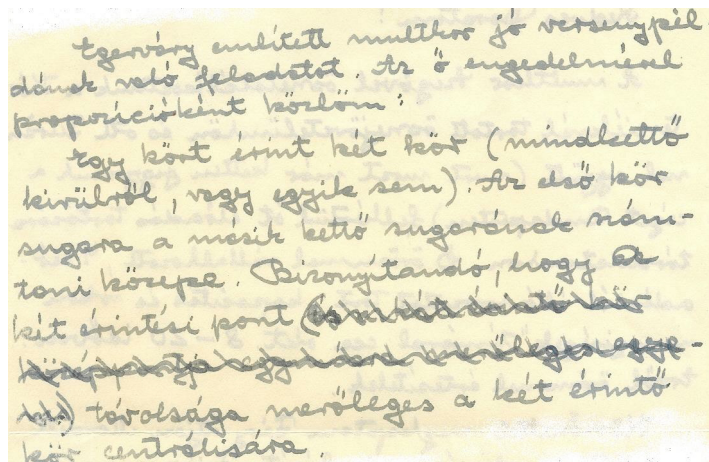 Egerváry említett multkor jó versenypél-
dának való feladatot. Az ő engedelmével
propozícióként közlöm:
Egy kört érint két kör (mindkettő
kívülről, vagy egyik sem). Az első kör
sugara a másik kettő sugarának szám-
tani közepe. Bizonyítandó, hogy a
két érintési pont
távolsága merőleges a két érintő
kör centrálisára.